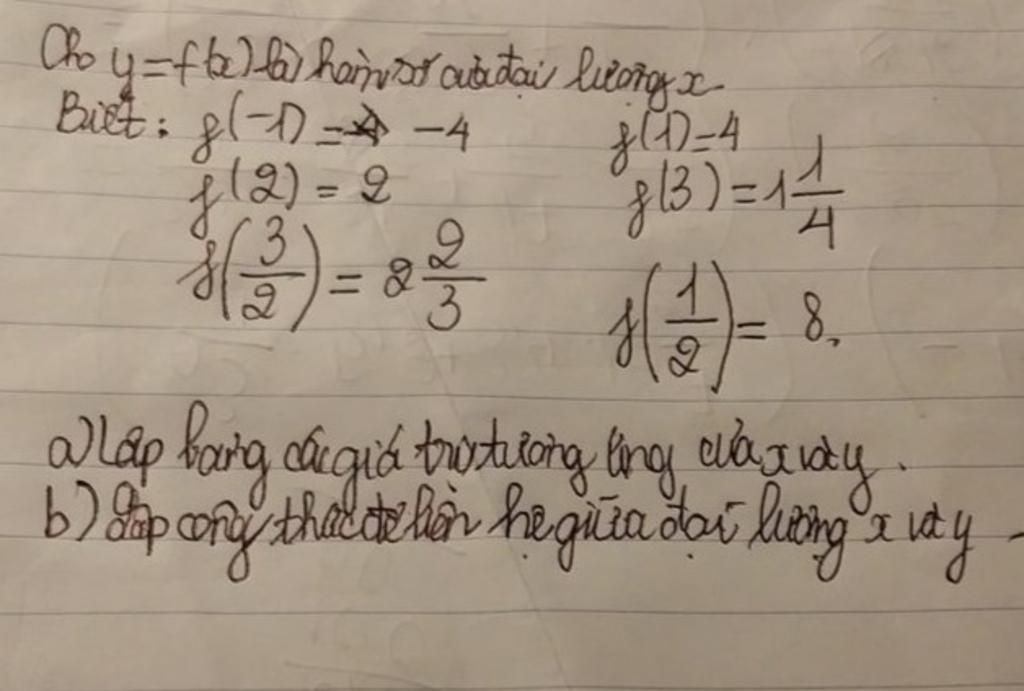 Cho y = f(x) là hàm số của đại lượng x
Biết: f(-1) = -4 f(1) = 4
f(2) = 2 f(3) = 1 1/4
f(3/2) = 2 2/3 f(1/2) = 8.
a) Lập bảng các giá trị tương ứng của x và y.
b) Lập công thức để liên hệ giữa đại lượng x và y